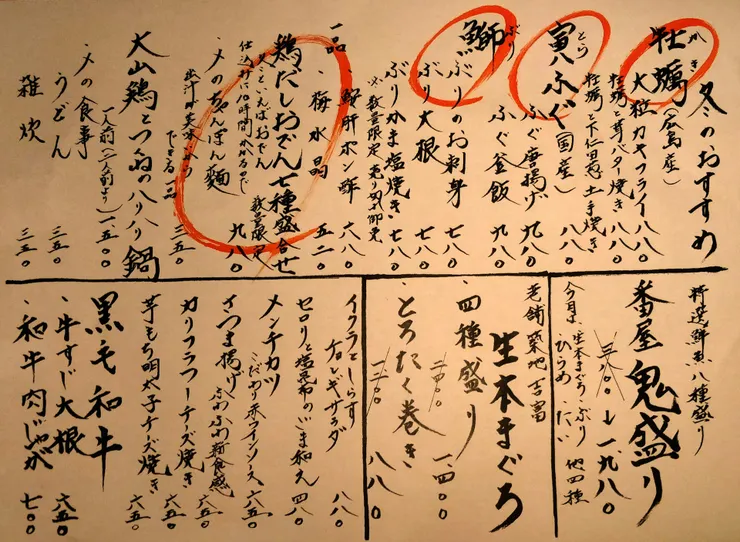 冬のおすすめ
牡蠣(広島産)
かき
大粒カキフライ 八八〇
牡蠣と芽バター焼き 八八〇
牡蠣と下仁田葱土手焼き 八八〇
寅ふぐ(国産)
とら
ふぐ唐揚げ 九八〇
ふぐ釜飯 九八〇
鰤
ぶり
ぶりのお刺身 七八〇
ぶり大根 七八〇
ぶりかま塩焼き 七八〇
※数量限定売り切れ御免
一品
・鮟肝ポン酢 六八〇
・梅水晶 五二〇
鶏だしおでん七種盛合せ 九八〇
冬といえばおでん
仕込みに10時間かかるので
数量限定
〆のちゃんぽん麺 三五〇
出汁が美味いから
できる一品
大山鶏とつくねのハリハリ鍋
一人前(二人前より) 一、五〇〇
〆の食事
うどん 三五〇
雑炊 三五〇
特選鮮魚八種盛り
番屋鬼盛り
三、一八〇→一、九八〇
今月は、生本まぐろ、ぶり
ひらめ、たい 他四種
老舗築地吉富
生本まぐろ
・四種盛り 二、四〇〇 一、四〇〇
・とろたく巻き 一、二八〇 八八〇
イクラとしらす
チョレギサラダ 八八〇
セロリと塩昆布のごま和え 四八〇
メンチカツ
こだわり赤ワインソース 六八〇
さつま揚げ
ふわふわ新食感 六五〇
カリフラワーチーズ焼き 六五〇
芋もち明太子チーズ焼き 六五〇
黒毛和牛
・牛すじ大根 六五〇
・和牛肉じゃが 七〇〇